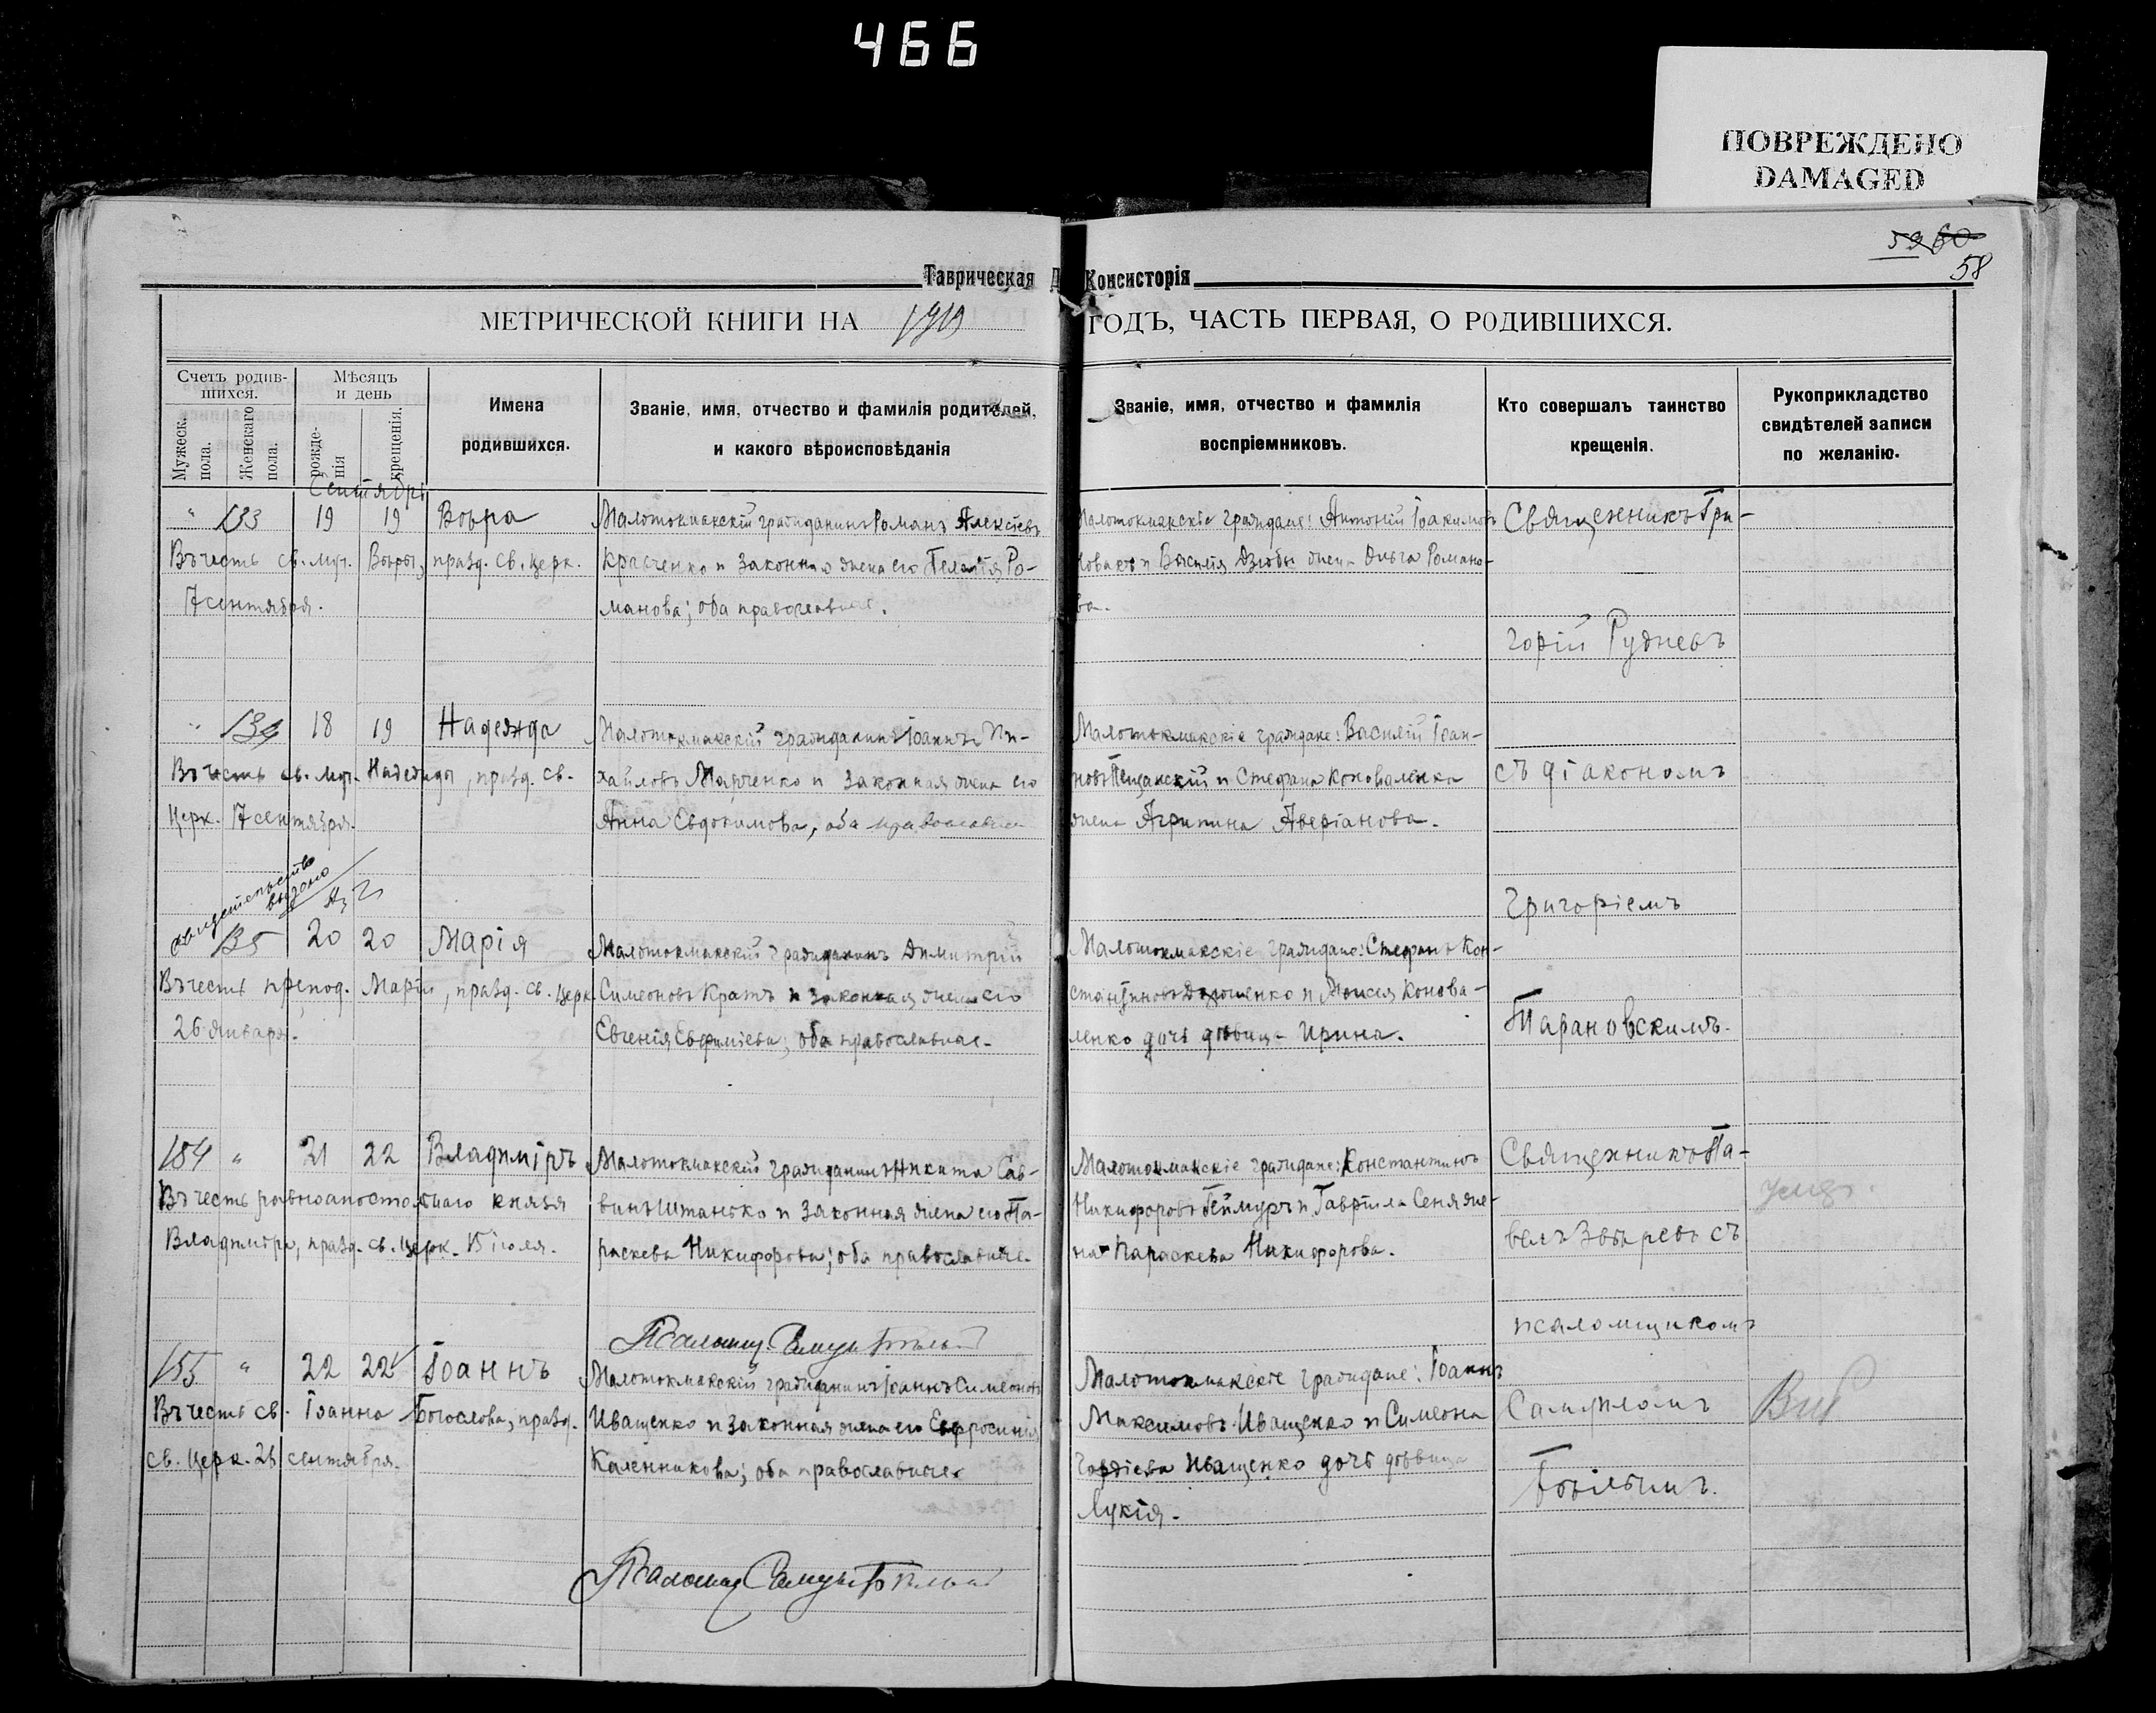 466
ПОВРЕЖДЕНО
DAMAGED
59 60
58
Таврическая Д Консисторія
МЕТРИЧЕСКОЙ КНИГИ НА 1919 ГОДЪ, ЧАСТЬ ПЕРВАЯ, О РОДИВШИХСЯ.
Счетъ родив-
шихся.
Мужеск.
пола.
Женскаго
пола.
Мѣсяцъ
и день
рожде-
нія
крещенія.
Имена
родившихся.
Званіе, имя, отчество и фамилія родителей,
и какого вѣроисповѣданія
Званіе, имя, отчество и фамилія
воспріемниковъ.
Кто совершалъ таинство
крещенія.
Рукоприкладство
свидѣтелей записи
по желанію.
Сентябрь
" 133 19 19 Вѣра
Въ честь св. муч. Вѣры, празд. св. церк.
17 сентября.
Малотокмакскій гражданинъ Романъ Алексіевъ
Красченко и законная жена его Пелагія Ро-
манова; оба православные.
Малотокмакскіе граждане: Антоній Іоакимовъ
Новакъ и Василія Дзюбы жена Ольга Романо-
ва.
Священникъ Гри-
горій Рудневъ
" 134 18 19 Надежда
Въ честь св. муч. Надежды, празд. св.
церк. 17 сентября.
Малотокмакскій гражданинъ Іоаннъ Ми-
хайловъ Марченко и законная жена его
Анна Евдокимова, оба православные
Малотокмакскіе граждане: Василій Іоан-
новъ Пещанскій и Стефана Коноваленко
жена Агрипина Аверіанова.
съ діакономъ
Григоріемъ
Тарановскимъ.
свидетельство
выдано
135 20 20 Марія
Въ честь препод. Маріи, празд. св. церк.
26 января.
Малотокмакскій гражданинъ Димитрій
Симеоновъ Кратъ и законная жена его
Евгенія Евфиміева; оба православные.
Малотокмакскіе граждане: Стефанъ Кон-
стантиновъ Дорошенко и Моисея Конова-
ленко дочь дѣвица Ирина.
154 " 21 22 Владиміръ
Въ честь равноапостольнаго князя
Владиміра, празд. св. церк. 15 іюля.
Малотокмакскій гражданинъ Никита Сав-
винъ Штанько и законная жена его Па-
раскева Никифорова; оба православные.
Малотокмакскіе граждане: Константинъ
Никифоровъ Геймуръ и Гавріила Сеня же-
на Параскева Никифорова.
Священникъ Па-
велъ Звѣревъ съ
псаломщикомъ
Самуиломъ
Бѣлымъ.
155 " 22 22 Іоаннъ
Въ честь св. Іоанна Богослова, празд.
св. церк. 26 сентября.
Малотокмакскій гражданинъ Іоаннъ Симеоновъ
Иващенко и законная жена его Евфросинія
Каленникова; оба православные.
Малотокмакскіе граждане: Іоаннъ
Максимовъ Иващенко и Симеона
Гордіева Иващенко дочь дѣвица
Лукія.